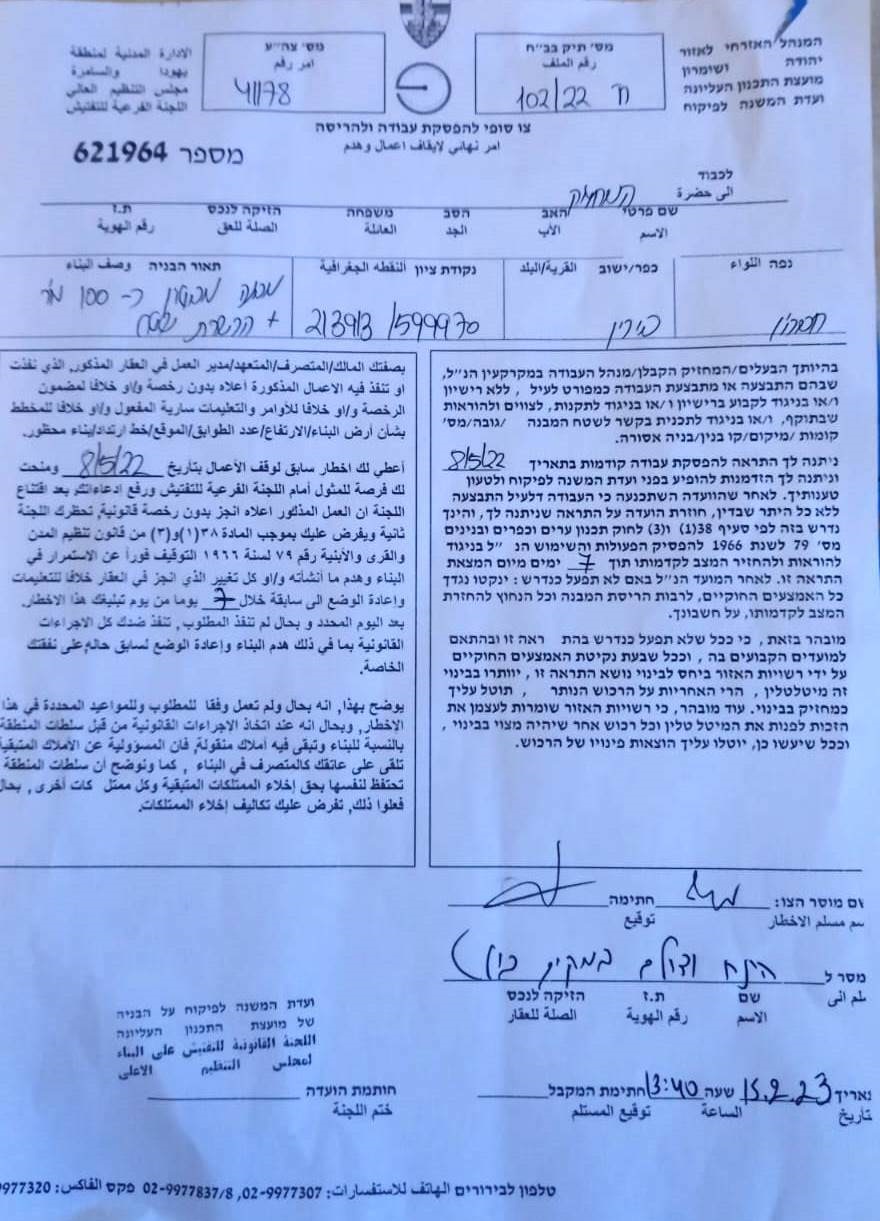 המנהל האזרחי לאזור
יהודה ושומרון
מועצת התכנון העליונה
ועדת המשנה לפיקוח
מס' תיק בב"ח
رقم الملف
ח 102/22
מס' צה"ע
امر رقم
41178
الادارة المدنية لمنطقة
يهودا والسامرة
مجلس التنظيم العالي
اللجنة الفرعية للتفتيش
צו סופי להפסקת עבודה ולהריסה
امر نهائي لايقاف اعمال وهدم
מספר 621964
לכבוד
الى حضرة המחזיק
שם פרטי האב הסב משפחה הזיקה לנכס ת.ז
الاسم الأب الجد العائلة الصلة للعق رقم الهوية
נפה اللواء כפר/ישוב القرية/البلد נקודת ציון النقطه الجغرافية תאור הבניה وصف البناء
חברון בירין 213913/599970 מבנה מבטון כ- 100 מ"ר
+ הכשרת שטח
בהיותך הבעלים/המחזיק הקבלן/מנהל העבודה במקרקעין הנ"ל,
שבהם התבצעה או מתבצעת העבודה כמפורט לעיל , ללא רישיון
ו/או בניגוד לקבוע ברישיון ו/או בניגוד לתקנות, לצווים ולהוראות
שבתוקף, ו/או בניגוד לתכנית בקשר לשטח המבנה /גובה/מס'
קומות /מיקום/קו בנין/בניה אסורה.
ניתנה לך התראה להפסקת עבודה קודמות בתאריך 8/5/22
וניתנה לך הזדמנות להופיע בפני ועדת המשנה לפיקוח ולטעון
טענותיך. לאחר שהוועדה השתכנעה כי העבודה דלעיל התבצעה
ללא כל היתר שבדין, חוזרת הועדה על התראה שניתנה לך, והינך
נדרש בזה לפי סעיף 38(1) ו(3) לחוק תכנון ערים וכפרים ובנינים
מס' 79 לשנת 1966 להפסיק הפעולות והשימוש הנ "ל בניגוד
להוראות ולהחזיר המצב לקדמותו תוך 7 ימים מיום המצאת
התראה זו. לאחר המועד הנ"ל באם לא תפעל כנדרש : ינקטו נגדך
כל האמצעים החוקיים, לרבות הריסת המבנה וכל הנחוץ להחזרת
המצב לקדמותו, על חשבונך.
מובהר בזאת, כי ככל שלא תפעל כנדרש בהת ראה זו ובהתאם
למועדים הקבועים בה , וככל שבעת נקיטת האמצעים החוקיים
על ידי רשויות האזור ביחס לבינוי נושא התראה זו , יוותרו בבינוי
זה מיטלטלין , הרי האחריות על הרכוש הנותר , תוטל עליך
כמחזיק בבינוי. עוד מובהר, כי רשויות האזור שומרות לעצמן את
הזכות לפנות את המיטל טלין וכל רכוש אחר שיהיה מצוי בבינוי ,
וככל שיעשו כן, יוטלו עליך הוצאות פינויו של הרכוש.
بصفتك المالك/المتصرف/المتعهد/مدير العمل في العقار المذكور, الذي نفذت
او تنفذ فيه الاعمال المذكورة أعلاه بدون رخصة و/او خلافا لمضمون
الرخصة و/او خلافا للأوامر والتعليمات سارية المفعول و/او خلافا للمخطط
بشأن أرض البناء/الارتفاع/عدد الطوابق/الموقع/خط ارتداد/بناء محظور.
أعطي لك اخطار سابق لوقف الأعمال بتأريخ 8/5/22 ومنحت
لك فرصة للمثول أمام اللجنة الفرعية للتفتيش ورفع ادعاءاتكم بعد اقتناع
اللجنة ان العمل المذكور اعلاه انجز بدون رخصة قانونية, تحظرك اللجنة
ثانية ويفرض عليك بموجب المادة ٣٨(١)و(٣) من قانون تنظيم المدن
والقرى والأبنية رقم ٧٩ لسنة ١٩٦٦ التوقيف فوراً عن الاستمرار في
البناء وهدم ما أنشأته و/او كل تغيير الذي انجز في العقار خلافا للتعليمات
وإعادة الوضع الى سابقة خلال 7 يوما من يوم تبليغك هذا الاخطار.
بعد اليوم المحدد و بحال لم تنفذ المطلوب, تنفذ ضدك كل الاجراءات
القانونية بما في ذلك هدم البناء وإعادة الوضع لسابق حاله على نفقتك
الخاصة.
يوضح بهذا, انه بحال ولم تعمل وفقا للمطلوب وللمواعيد المحددة في هذا
الإخطار, وبحال انه عند اتخاذ الاجراءات القانونية من قبل سلطات المنطقة
بالنسبة للبناء وتبقى فيه أملاك منقولة, فان المسؤولية عن الأملاك المتبقية
تلقى على عاتقك كالمتصرف في البناء , كما ونوضح أن سلطات المنطقة
تحتفظ لنفسها بحق إخلاء الممتلكات المتبقية وكل ممتل كات أخرى, بحال
فعلوا ذلك, تفرض عليك تكاليف إخلاء الممتلكات.
ום מוסר הצו: חתימה
سم مسلم الاخطار توقيع
מסר ל הונח וצולם במקום
لم الى שם ת.ז הזיקה לנכס
الاسم رقم الهوية الصلة للعقار
ועדת המשנה לפיקוח על הבניה
של מועצת התכנון העליונה
اللجنة القانونية للتفتيش على البناء
لمجلس التنظيم الاعلى
תאריך 15.2.23 שעה 13:40 חתימת המקבל
تاريخ الساعة توقيع المستلم
חותמת הועדה
ختم اللجنة
טלפון לבירורים الهاتف للاستفسارات: 02-9977307, 02-9977837/8 פקס الفاكس: 9977320